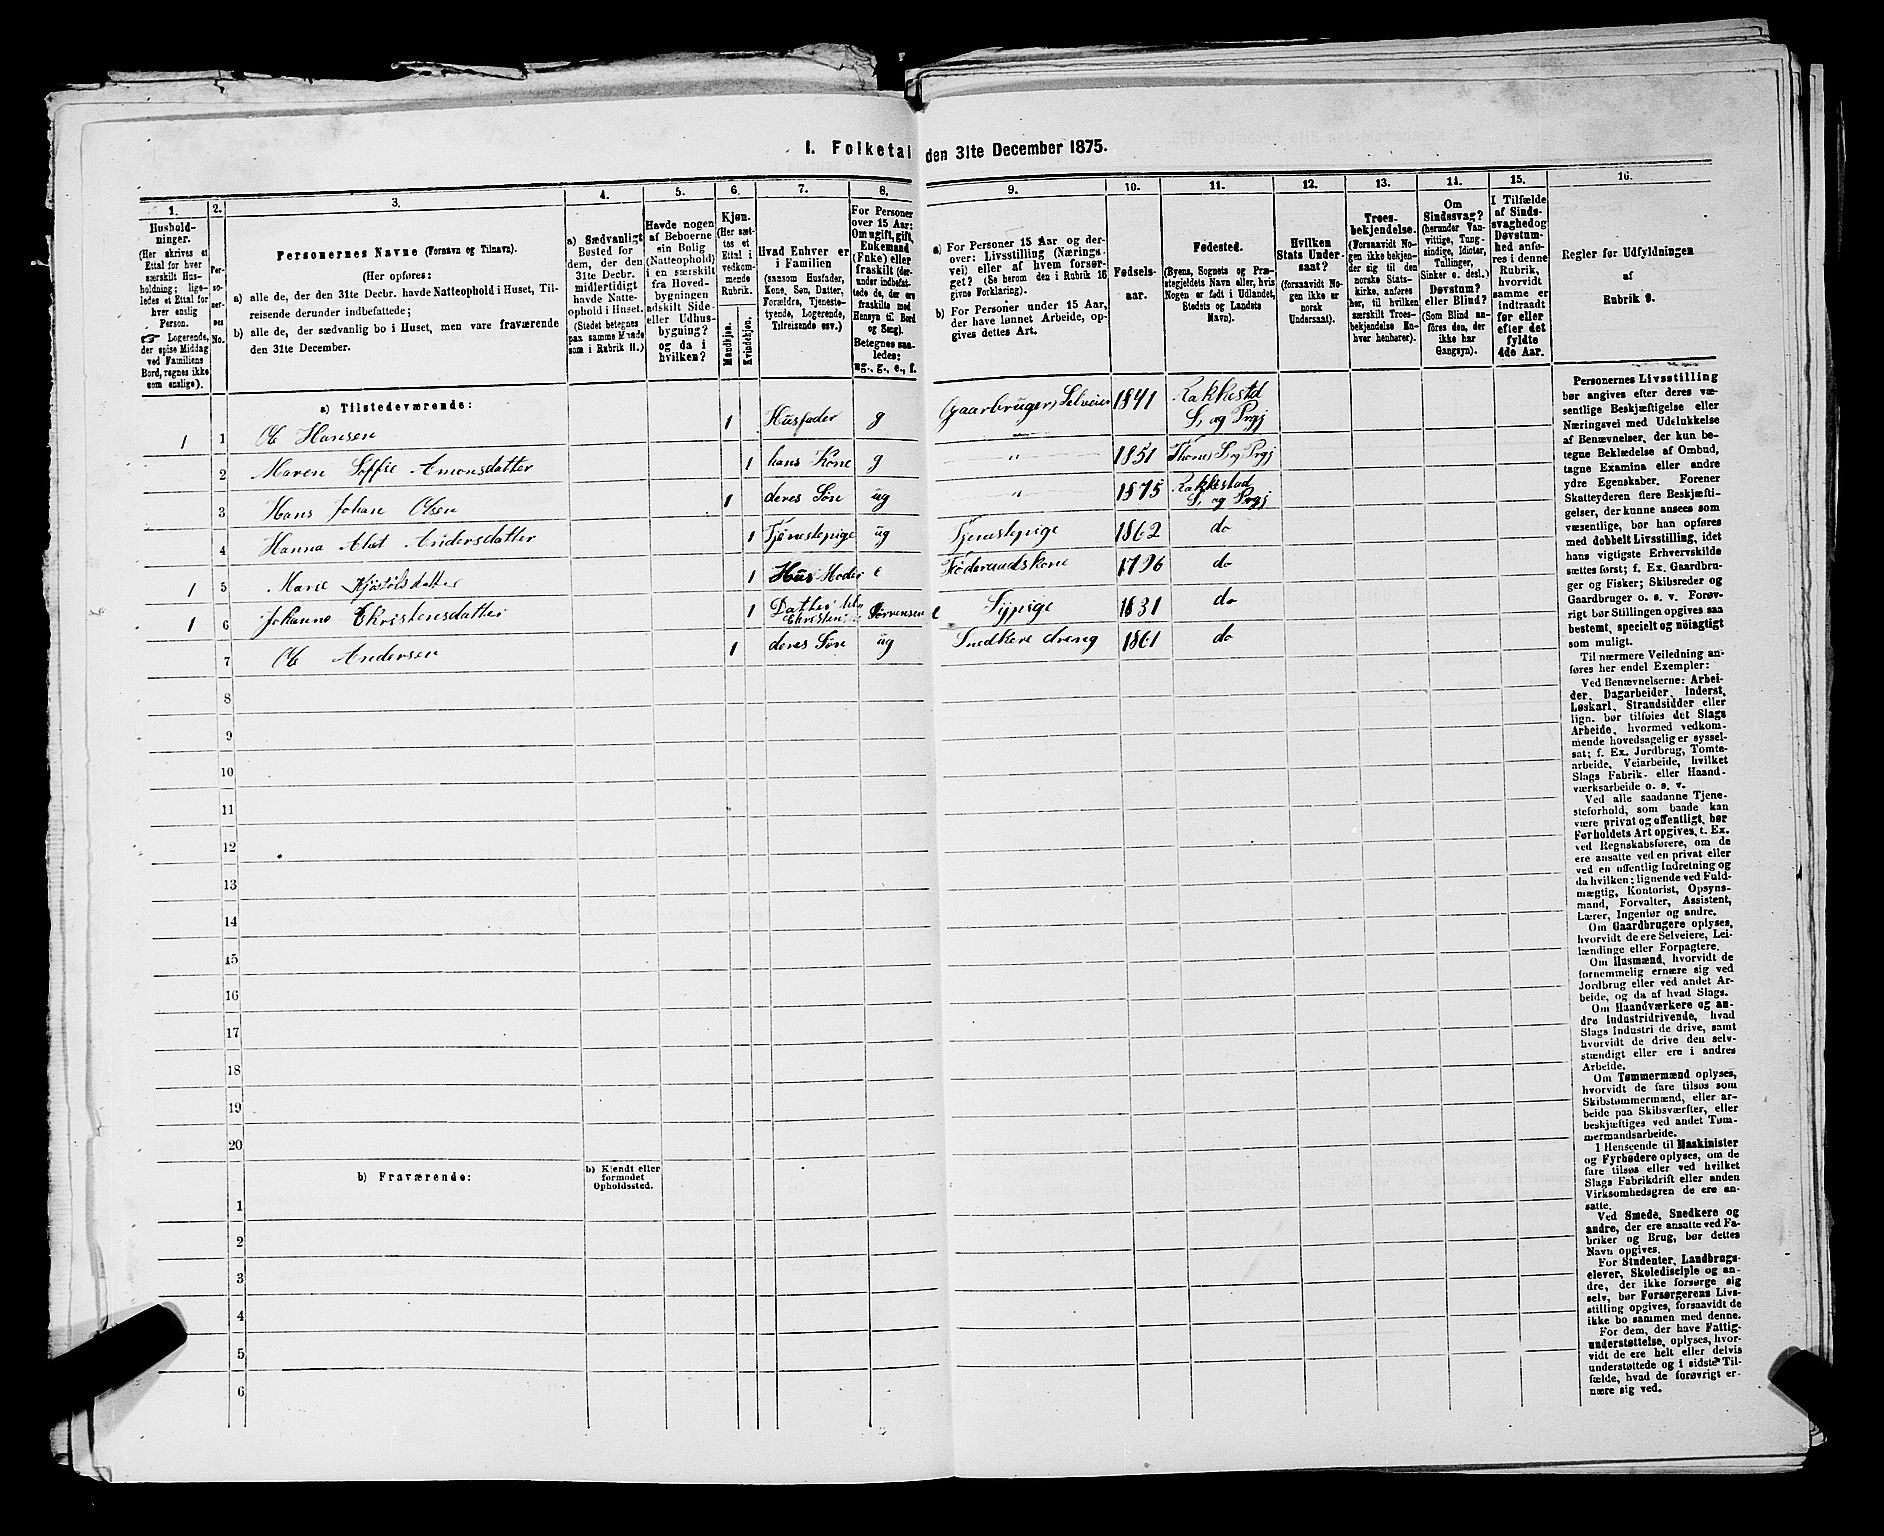 I. Folketal den 31te December 1875.
1.
Hushold-
ninger.
(Her skrives et
Ettal for hver
særskilt Hus-
holdning; lige-
ledes et Ettal for
hver enslig
Person.
☞ Logerende,
der spise Middag
ved Familiens
Bord, regnes ikke
som enslige).
2.
Per-
so-
ner-
nes
No.
3.
Personernes Navne (Fornavn og Tilnavn).
(Her opføres:
a) alle de, der den 31te Decbr. havde Natteophold i Huset, Til-
reisende derunder indbefattede;
b) alle de, der sædvanlig bo i Huset, men vare fraværende
den 31te December.
4.
a) Sædvanligt
Bosted for
dem, der den
31te Decbr.
midlertidigt
havde Natte-
ophold i Huset.
(Stedet betegnes
paa samme Maade
som i Rubrik 11.)
5.
Havde nogen
af Beboerne
sin Bolig
(Natteophold)
i en særskilt
fra Hoved-
bygningen
adskilt Side-
eller Udhus-
bygning?
og da i
hvilken?
6.
Kjøn.
(Her sæt-
tes et
Ettal i
vedkom-
mende
Rubrik.
Mandkjøn.
Kvindekjøn.
7.
Hvad Enhver er
i Familien
(saasom Husfader,
Kone, Søn, Datter,
Forældre, Tjeneste-
tyende, Logerende,
Tilreisende osv.)
8.
For Personer
over 15 Aar:
Om ugift, gift,
Enkemand
(Enke) eller
fraskilt (der-
under indbefat-
tede de, der ere
fraskilte med
Hensyn til Bord
og Seng).
Betegnes saa-
ledes:
ug., g., e., f.
9.
a) For Personer 15 Aar og der-
over: Livsstilling (Nærings-
vei) eller af hvem forsør-
get? (Se herom den i Rubrik 16
givne Forklaring).
b) For Personer under 15 Aar,
der have lønnet Arbeide, op-
gives dettes Art.
10.
Fødsels-
aar.
11.
Fødested.
(Byens, Sognets og Præ-
stegjeldets Navn eller, hvis
Nogen er født i Udlandet,
Stedets og Landets
Navn).
12.
Hvilken
Stats Under-
saat?
(forsaavidt No-
gen ikke er
norsk
Undersaat).
13.
Troes-
bekjendelse.
(Forsaavidt No-
gen ikke bekjen-
der sig til den
norske Stats-
kirke, anføres
her, til hvilken
særskilt Troes-
bekjendelse En-
hver henhører).
14.
Om
Sindssvag?
(herunder Van-
vittige, Tung-
sindige, Idioter,
Tullinger,
Sinker o. desl.)
Døvstum?
eller Blind?
(Som Blind an-
føres den, der
ikke har
Gangsyn).
15.
I Tilfælde
af Sinds-
svaghed og
Døvstum-
hed anfø-
res i denne
Rubrik,
hvorvidt
samme er
indtraadt
før eller
efter det
fyldte
4de Aar.
16.
Regler for Udfyldningen
af
Rubrik 9.
a) Tilstedeværende:
1 1 Ole Hansen 1 Husfader g (gaarbruger) Selveier 1841 Rakkestad S. og Prgj
2 Maren Soffie Amonsdatter 1 hans Kone g " 1851 S og Prgj
3 Hans Johan Olsen 1 deres Søn ug " 1875 Rakkestad S. og Prgj
4 Hanna Andersdatter 1 Tjenestepige ug Tjenestepige 1862 do
1 5 Marie 1 Hus Moder e Føderaadskone 1796 do
1 6 Johanne Christensdatter 1 Datter Christen Sørensen e Sypige 1831 do
7 Ole Andersen 1 deres Søn ug Snedkere dreng 1861 do
8
9
10
11
12
13
14
15
16
17
18
19
20
b) Fraværende:
b) Kjendt eller
formodet
Opholdssted.
1
2
3
4
5
6
Personernes Livsstilling
bør angives efter deres væ-
sentlige Beskjæftigelse eller
Næringsvei med Udelukkelse
af Benævnelser, der kun be-
tegne Beklædelse af Ombud,
tagne Examina eller andre
ydre Egenskaber. Forener
Skatteyderen flere Beskjæfti-
gelser, der kunne ansees som
væsentlige, bør han opføres
med dobbelt Livsstilling, idet
hans vigtigste Erhvervskilde
sættes først; f. Ex. Gaardbru-
ger og Fisker; Skibsreder og
Gaardbruger o. s. v. Forøv-
rigt bør Stillingen opgives saa
bestemt, specielt og nöiagtigt
som muligt.
Til nærmere Veiledning an-
føres her endel Exempler:
Ved Benævnelserne: Arbei-
der, Dagarbeider, Inderst,
Løskarl, Strandsidder eller
lign. bør tilføies det Slags
Arbeide, hvormed vedkom-
mende hovedsagelig er syssel-
sat; f. Ex. Jordbrug, Tomte-
arbeide, Veiarbeide, hvilket
Slags Fabrik- eller Haand-
værksarbeide o. s. v.
Ved alle saadanne Tjene-
steforhold, som baade kan
være privat og offentligt, bør
Forholdets Art opgives, t. Ex.
ved Regnskabsførere, om de
ere ansatte ved en privat eller
ved en offentlig Indretning og
da hvilken; lignende ved Fuld-
mægtig, Kontorist, Opsyns-
mand, Forvalter, Assistent,
Lærer, Ingeniør og andre.
Om Gaardbrugere oplyses,
hvorvidt de ere Selveiere, Lei-
lændinge eller Forpagtere.
Om Husmænd, hvorvidt de
fornemmelig ernære sig ved
Jordbrug eller ved andet Ar-
beide, og da af hvad Slags.
Om Haandværkere og an-
dre Industridrivende, hvad
Slags Industri de drive, samt
hvorvidt de drive den selv-
stændigt eller ere i andres
Arbeide.
Om Tømmermænd oplyses,
hvorvidt de fare tilsøs som
Skibstømmermænd, eller ar-
beide paa Skibsværfter, eller
beskjæftiges ved andet Tøm-
mermandsarbeide.
I Henseende til Maskinister
og Fyrbødere oplyses, om de
fare tilsøs eller ved hvilket
Slags Fabrikdrift eller anden
Virksomhedsgren de ere an-
satte.
Ved Smede, Snedkere og
andre, der ere ansatte ved Fa-
briker og Brug, bør dettes
Navn opgives.
For Studenter, Landbrugs-
elever, Skoledisciple og an-
dre, der ikke forsørge sig
selv, bør Forsørgerens Livs-
stilling opgives, forsaavidt de
ikke bo sammen med denne.
For dem, der have Fattig-
understøttelse, oplyses, hvor-
vidt de ere helt eller delvis
understøttede og i sidste Til-
fælde, hvad de forøvrigt er-
nære sig ved.